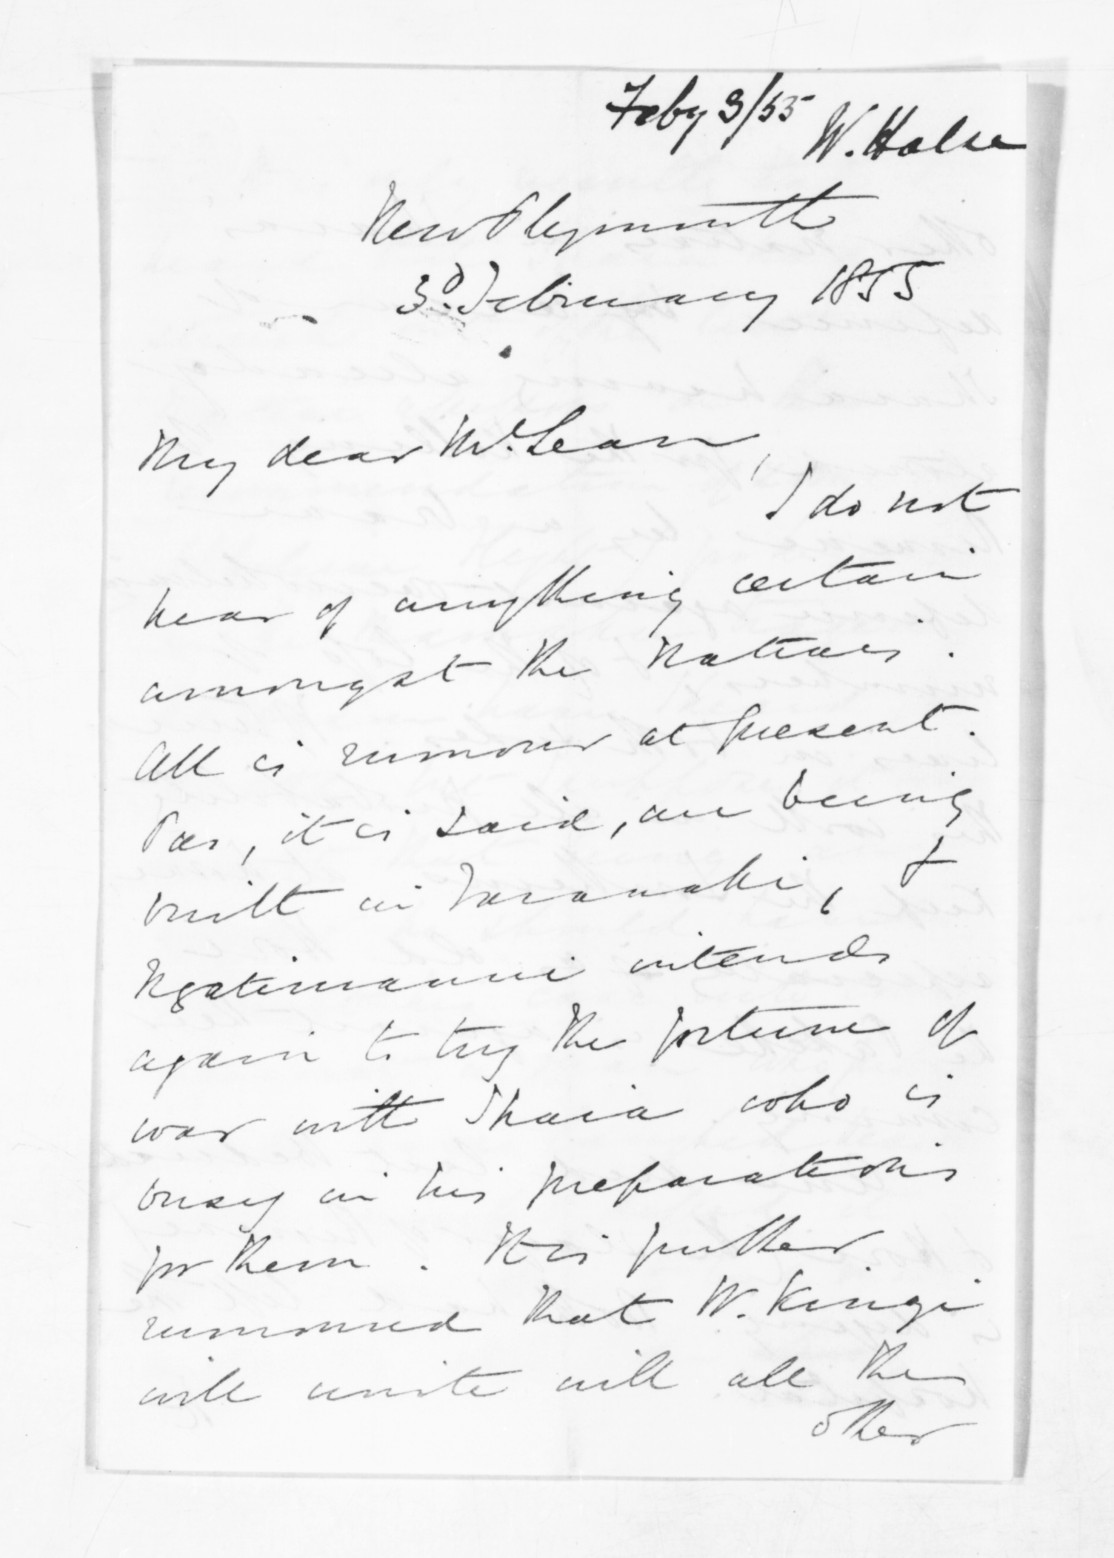 Feby 3/55
W. Halse
New Plymouth
3d. February 1855
My dear Mc.Lean,
I do not
hear of anything certain
amongst the Natives.
All is rumour at present.
Pas, it is said, are being
built in Taranaki, &
Ngatiruanui intends
again to try the fortune of
war with Ihaia who is
busy in his preparations
for them. It is further
rumoured that W. Kingi
will unite with all the
other